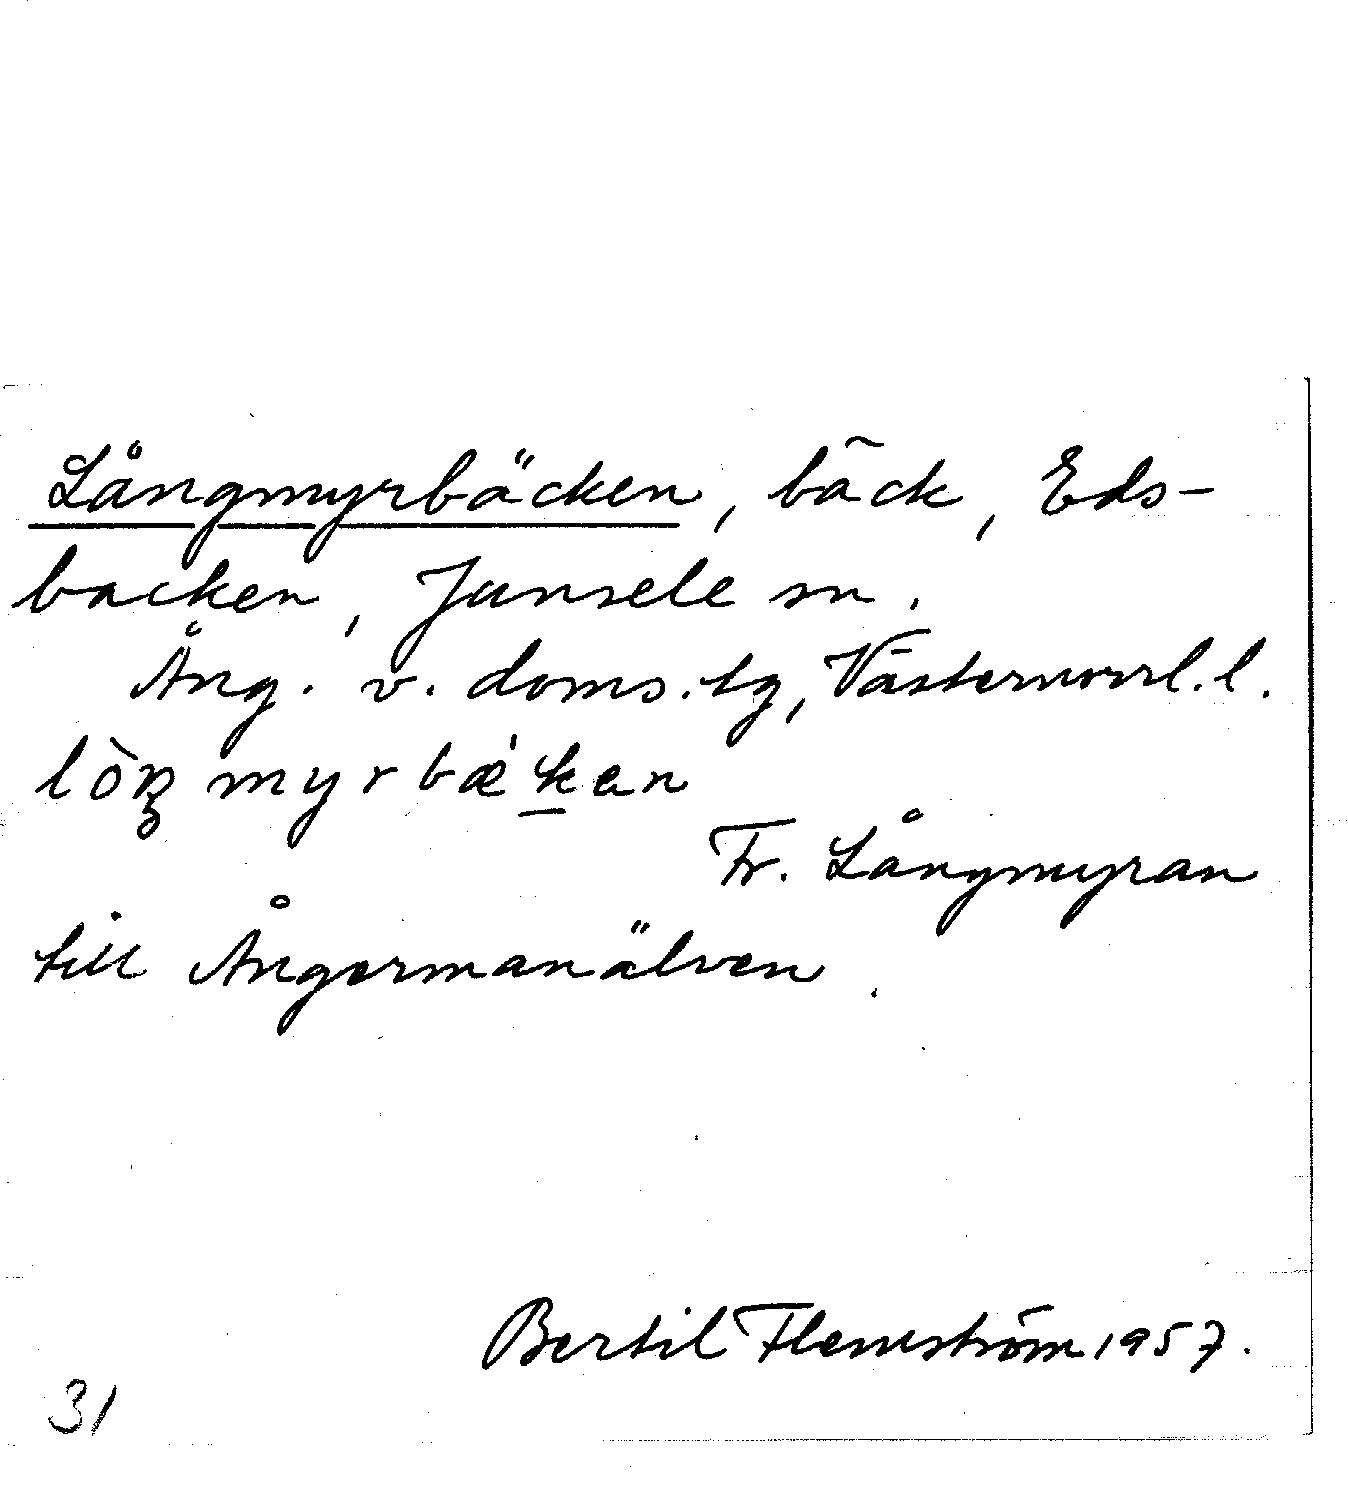 Långmyrbäcken, bäck, Eds-
backen, Junsele sn.
Ång. v. doms.tg, Västernorrl.l.
lòŋ myrbæ̀ken
Fr. Långmyran
till Ångermanälven.
Bertil Flemström 1957.
31